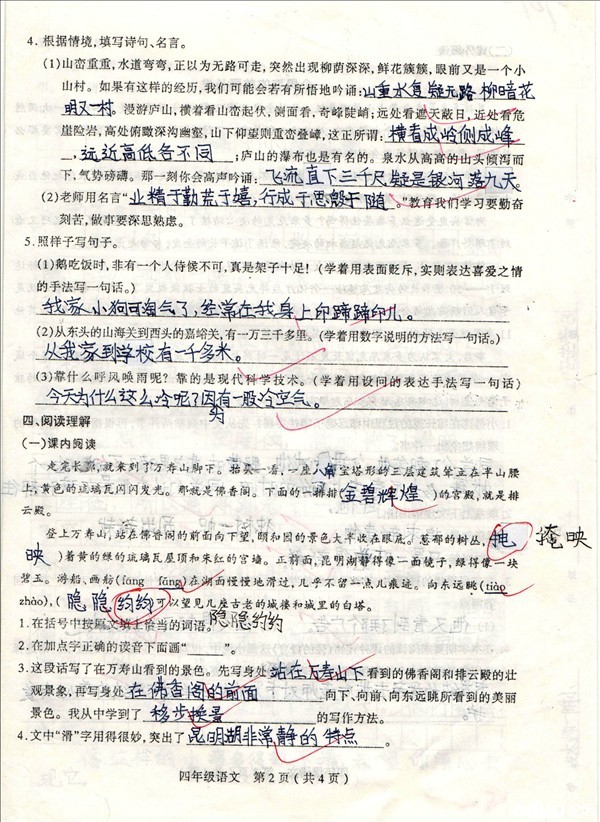 4. 根据情境,填写诗句、名言。
(1)山峦重重,水道弯弯,正以为无路可走,突然出现柳荫深深,鲜花簇簇,眼前又是一个小
山村。如果有这样的经历,我们可能会若有所悟地吟诵:山重水复疑无路 柳暗花
明又一村。漫游庐山,横着看山峦起伏,侧面看,奇峰陡峭;远处看遮天蔽日,近处看危
崖险岩,高处俯瞰深沟幽壑,山下仰望则重峦叠嶂,这正所谓:横看成岭侧成峰
,远近高低各不同;庐山的瀑布也是有名的。泉水从高高的山头倾泻而
下,气势磅礴。那一刻你会高声吟诵:飞流直下三千尺疑是银河落九天。
(2)老师用名言“业精于勤荒于嬉,行成于思毁于随。”教育我们学习要勤奋
刻苦,做事要深思熟虑。
5. 照样子写句子。
(1)鹅吃饭时,非有一个人侍候不可,真是架子十足!(学着用表面贬斥,实则表达喜爱之情
的手法写一句话。)
我家小狗可淘气了,经常在我身上印蹄蹄印儿。
(2)从东头的山海关到西头的嘉峪关,有一万三千多里。(学着用数字说明的方法写一句话。)
从我家到学校有一千多米。
(3)靠什么呼风唤雨呢?靠的是现代科学技术。(学着用设问的表达手法写一句话)
今天为什么这么冷呢?因有一股冷空气。
为
四、阅读理解
(一)课内阅读
走完长廊,就来到了万寿山脚下。抬头一看,一座八角宝塔形的三层建筑耸立在半山腰
上,黄色的琉璃瓦闪闪发光。那就是佛香阁。下面的一排排(金碧辉煌)的宫殿,就是排
云殿。
登上万寿山,站在佛香阁的前面向下望,颐和园的景色大半收在眼底。葱郁的树丛,(掩 掩映
映)着黄的绿的琉璃瓦屋顶和朱红的宫墙。正前面,昆明湖静得像一面镜子,绿得像一块
碧玉。游船、画舫(fang fǎng)在湖面慢慢地滑过,几乎不留一点儿痕迹。向东远眺(tiào
zhào),(隐隐约约)可以望见几座古老的城楼和城里的白塔。
1. 在括号中按原文填上恰当的词语。隐隐约约
2. 在加点字正确的读音下面画“____”。
3. 这段话写了在万寿山看到的景色。先写身处站在万寿山下看到的佛香阁和排云殿的壮
观景象,再写身处在佛香阁的前面向下、向前、向东远眺所看到的美丽
景色。我从中学到了移步换景的写作方法。
4. 文中“滑”字用得很妙,突出了昆明湖非常静的特点。
四年级语文 第2页(共4页)